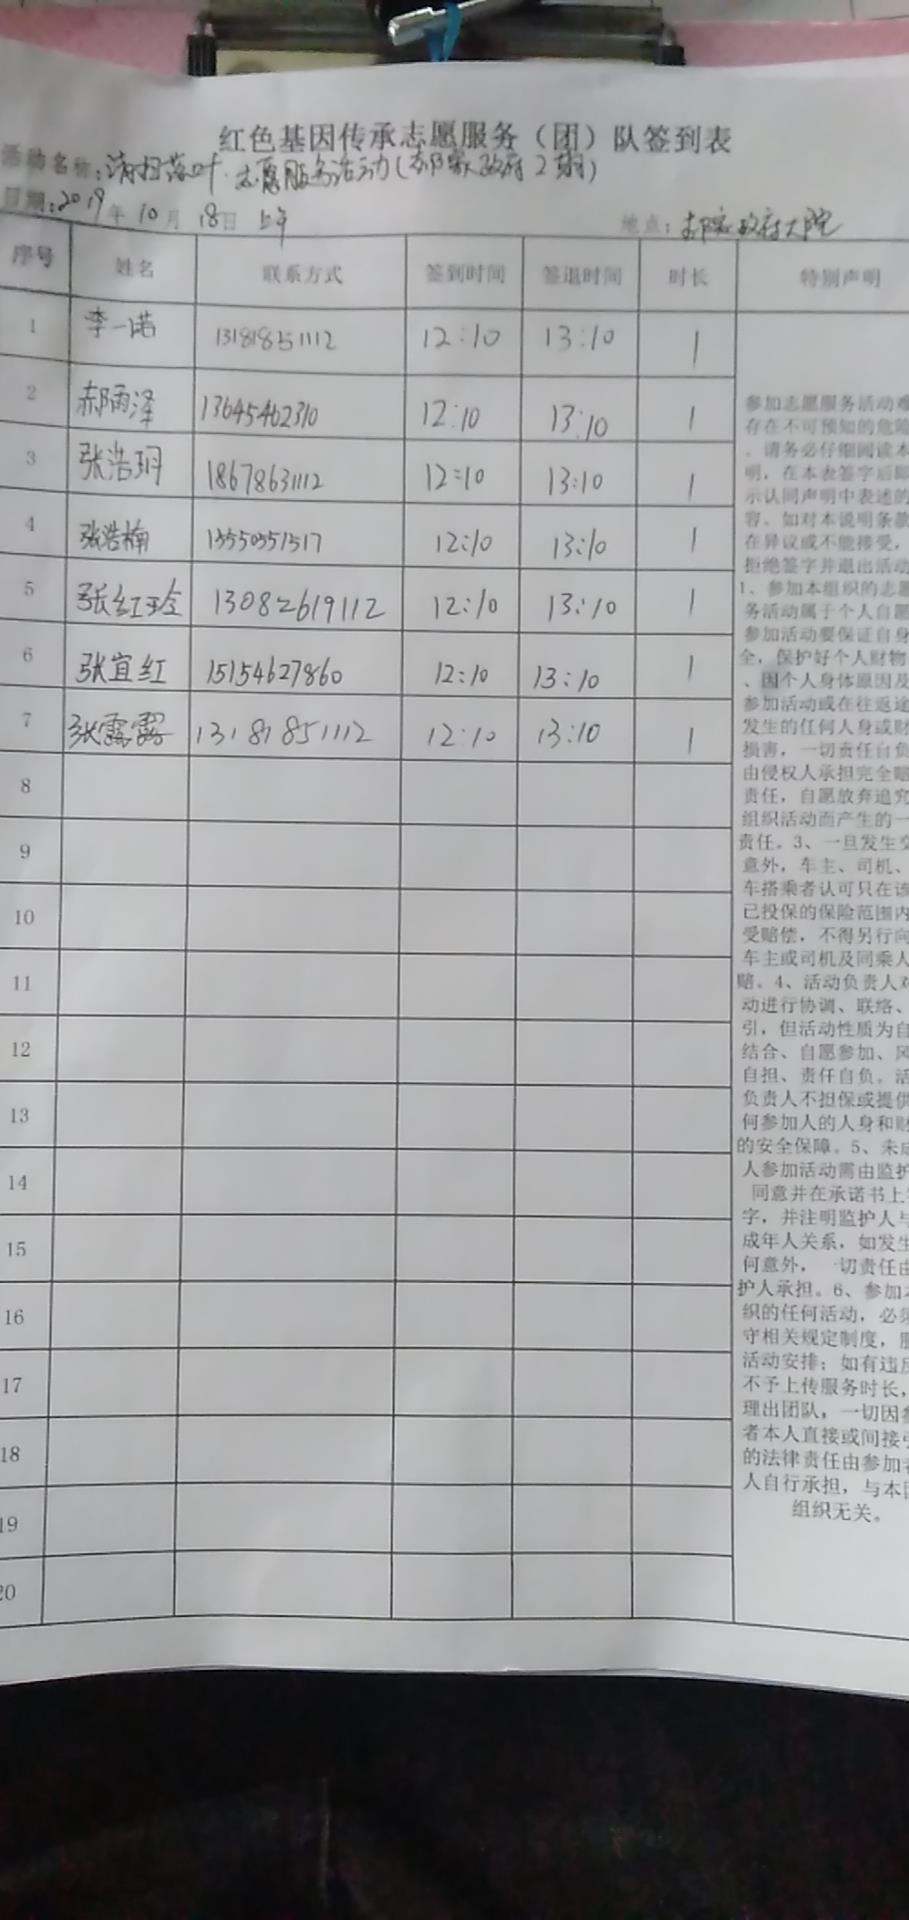 红色基因传承志愿服务（团）队签到表
活动名称：清扫落叶·志愿服务活动(郝家政府2期)
日期：2019年10月18日 上午 地点：郝家政府大院
序号 姓名 联系方式 签到时间 签退时间 时长 特别声明
1 李一诺 13181851112 12:10 13:10 1
2 郝雨泽 13645462310 12:10 13:10 1
3 张浩玥 18678631112 12:10 13:10 1
4 张浩楠 13550351517 12:10 13:10 1
5 张红玲 13082619112 12:10 13:10 1
6 张宜红 15154627860 12:10 13:10 1
7 张露露 13181851112 12:10 13:10 1
8
9
10
11
12
13
14
15
16
17
18
19
20
参加志愿服务活动难
存在不可预知的危险
．请务必仔细阅读本
明，在本表签字后即
示认同声明中表述的
容。如对本说明条款
在异议或不能接受，
拒绝签字并退出活动
1、参加本组织的志愿
务活动属于个人自愿
参加活动要保证自身
全，保护好个人财物
、因个人身体原因及
参加活动或在往返途
发生的任何人身或财
损害，一切责任自负
由侵权人承担完全赔
责任，自愿放弃追究
组织活动而产生的一
责任。3、一旦发生交
意外，车主、司机、
车搭乘者认可只在该
已投保的保险范围内
受赔偿，不得另行向
车主或司机及同乘人
赔。4、活动负责人对
动进行协调、联络、
引，但活动性质为自
结合、自愿参加、风
自担、责任自负。活
负责人不担保或提供
何参加人的人身和财
的安全保障。5、未成
人参加活动需由监护
同意并在承诺书上
字，并注明监护人与
成年人关系，如发生
何意外，一切责任由
护人承担。6、参加本
织的任何活动，必须
守相关规定制度，服
活动安排；如有违反
不予上传服务时长，
理出团队，一切因参
者本人直接或间接引
的法律责任由参加者
人自行承担，与本团
组织无关。